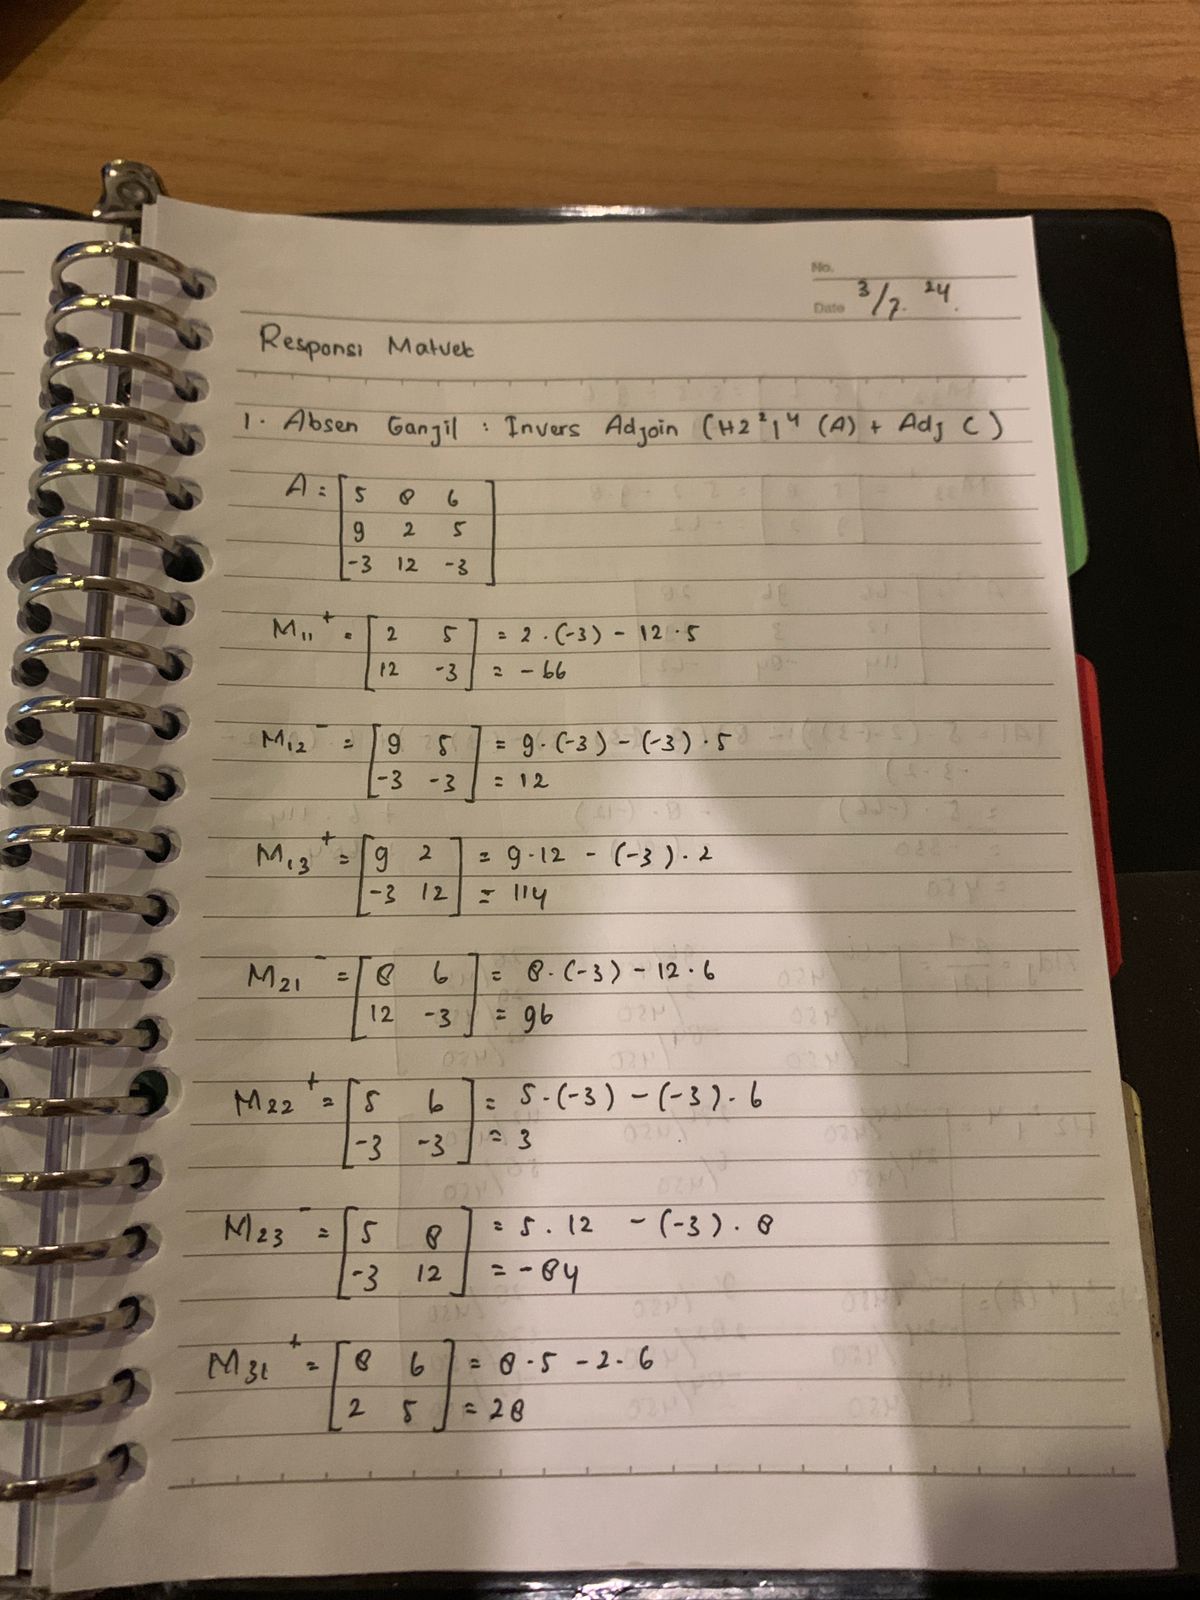 No.
Date 3/7. 24.
Responsi Matvek
1. Absen Ganjil : Invers Adjoin (H2²)⁴ (A) + Adj C )
A = [ 5 8 6
9 2 5
-3 12 -3 ]
M₁₁⁺ = [ 2 5 ] = 2 . (-3) - 12 . 5
[ 12 -3 ] = -66
M₁₂⁻ = [ 9 5 ] = 9 . (-3) - (-3) . 5
[ -3 -3 ] = 12
M₁₃⁺ = [ 9 2 ] = 9 . 12 - (-3) . 2
[ -3 12 ] = 114
M₂₁⁻ = [ 8 6 ] = 8 . (-3) - 12 . 6
[ 12 -3 ] = 96
M₂₂⁺ = [ 5 6 ] = 5 . (-3) - (-3) . 6
[ -3 -3 ] = 3
M₂₃⁻ = [ 5 8 ] = 5 . 12 - (-3) . 8
[ -3 12 ] = -84
M₃₁⁺ = [ 8 6 ] = 8 . 5 - 2 . 6
[ 2 5 ] = 28